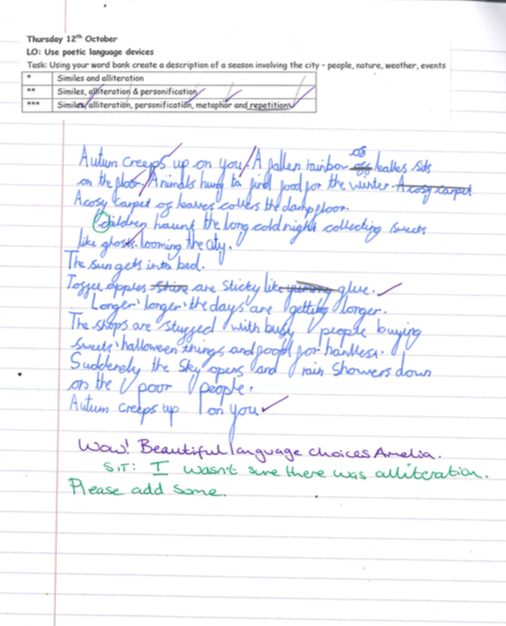 Thursday 12th October
LO: Use poetic language devices
Task: Using your word bank create a description of a season involving the city – people, nature, weather, events
* Similes and alliteration
** Similes, alliteration & personification
*** Similes/alliteration, personification, metaphor and repetition
Autum creeps up on you. A fallen rainbow of leafles sits
on the floor. Animals hunt to find food for the winter. A cosy carpet
A cosy carpet of leaves covers the damp floor.
Children haunt the long cold night collecting sweets
like ghosts looming the city.
The sun gets into bed.
Toffee apples are sticky like yummy glue.
Longer, longer the days are getting longer.
The shops are stuffed with busy people buying
sweets, halloween things and food for
Suddenly the sky opens and rain showers down
on the poor people.
Autum creeps up on you
Wow! Beautiful language choices Amelia.
S.I.T: I wasn't sure there was alliteration.
Please add some.